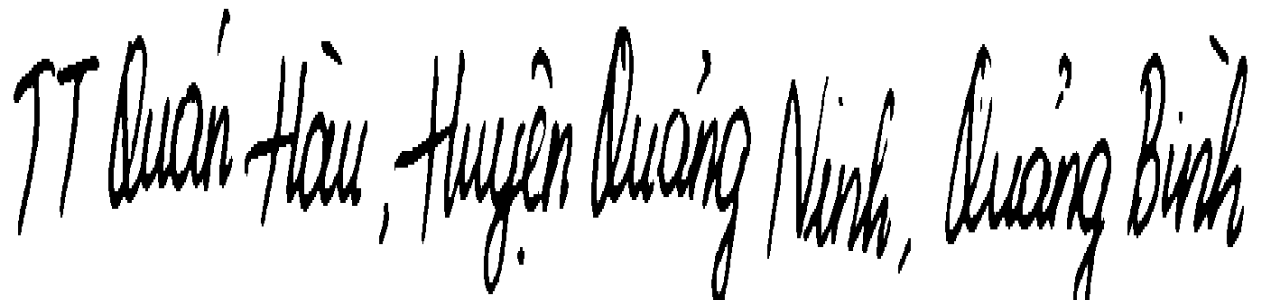 TT Quán Hàu, Huyện Quảng Ninh, Quảng Bình